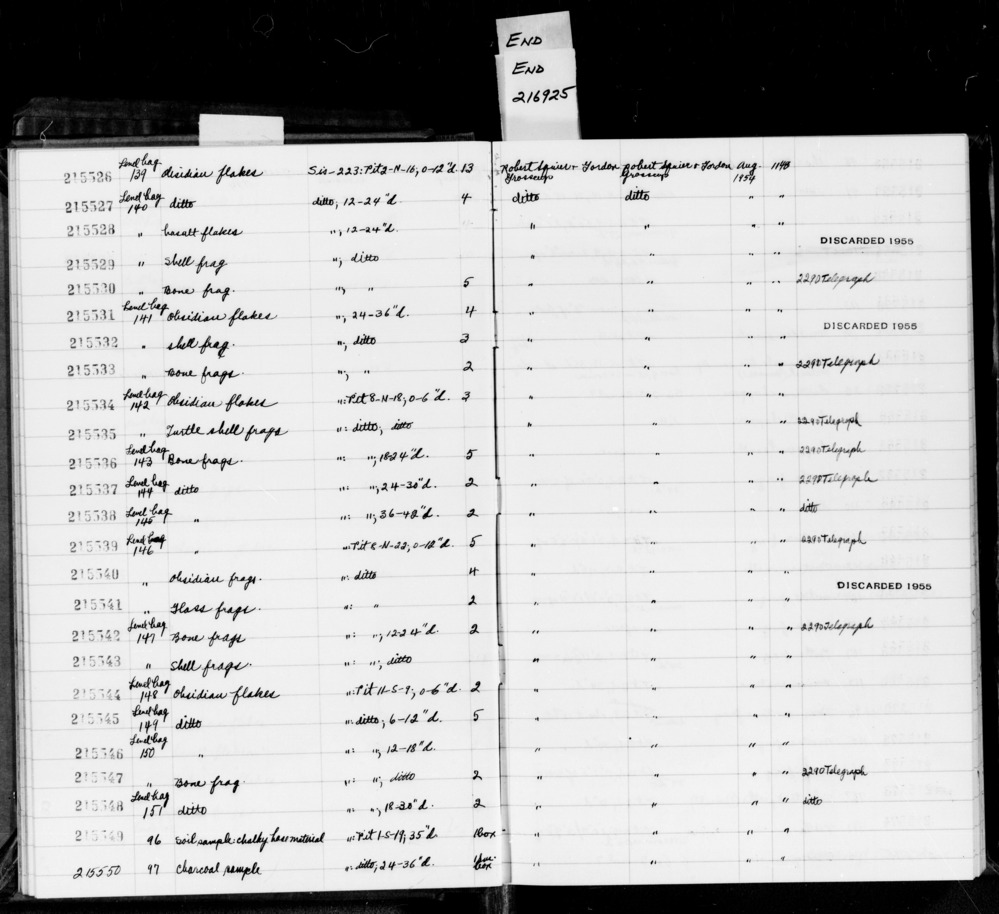 END
END
216925
215526 Level bag 139 obsidian flakes Sis-223: Pit 2-N-16; 0-12"d. 13 Robert Squier + Gordon Grosscup Robert Squier + Gordon Grosscup Aug. 1954 1148
215527 Level bag 140 ditto ditto; 12-24"d. 4 ditto ditto " "
215528 " basalt flakes "; 12-24"d. " " " "
215529 " shell frag "; ditto " " " " DISCARDED 1955
215530 " Bone frag. "; " 5 " " " " 2290 Telegraph
215531 Level bag 141 Obsidian flakes "; 24-36"d. 4 " " " "
215532 " shell frag. "; ditto 3 " " " " DISCARDED 1955
215533 " Bone frags. "; " 2 " " " " 2290 Telegraph
215534 Level bag 142 Obsidian flakes ": Pit 8-N-18; 0-6"d. 3 " " " "
215535 " Turtle shell frags ": ditto; ditto " " " " 2290 Telegraph
215536 Level bag 143 Bone frags. ": "; 18-24"d. 5 " " " " 2290 Telegraph
215537 Level bag 144 ditto ": "; 24-30"d. 2 " " " " 2290 Telegraph
215538 Level bag 145 " ": "; 36-42"d. 2 " " " " ditto
215539 Level bag 146 " ": Pit 8-N-22; 0-12"d. 5 " " " " 2290 Telegraph
215540 " Obsidian frags. ": ditto 4 " " " " DISCARDED 1955
215541 " Glass frags. ": " 2 " " " "
215542 Level bag 147 Bone frags ": "; 12-24"d. 2 " " " " 2290 Telegraph
215543 " Shell frags. ": "; ditto " " " "
215544 Level bag 148 Obsidian flakes ": Pit 11-S-9; 0-6"d. 2 " " " "
215545 Level bag 149 ditto ": ditto; 6-12"d. 5 " " " "
215546 Level bag 150 " ": "; 12-18"d. " " " "
215547 " Bone frag. ": "; ditto 2 " " " " 2290 Telegraph
215548 Level bag 151 ditto ": "; 18-30"d. 2 " " " " ditto
215549 96 Soil sample: chalky material ": Pit 1-S-19; 35"d. 1 box " " " "
215550 97 Charcoal sample ": ditto; 24-36"d. box " " " "